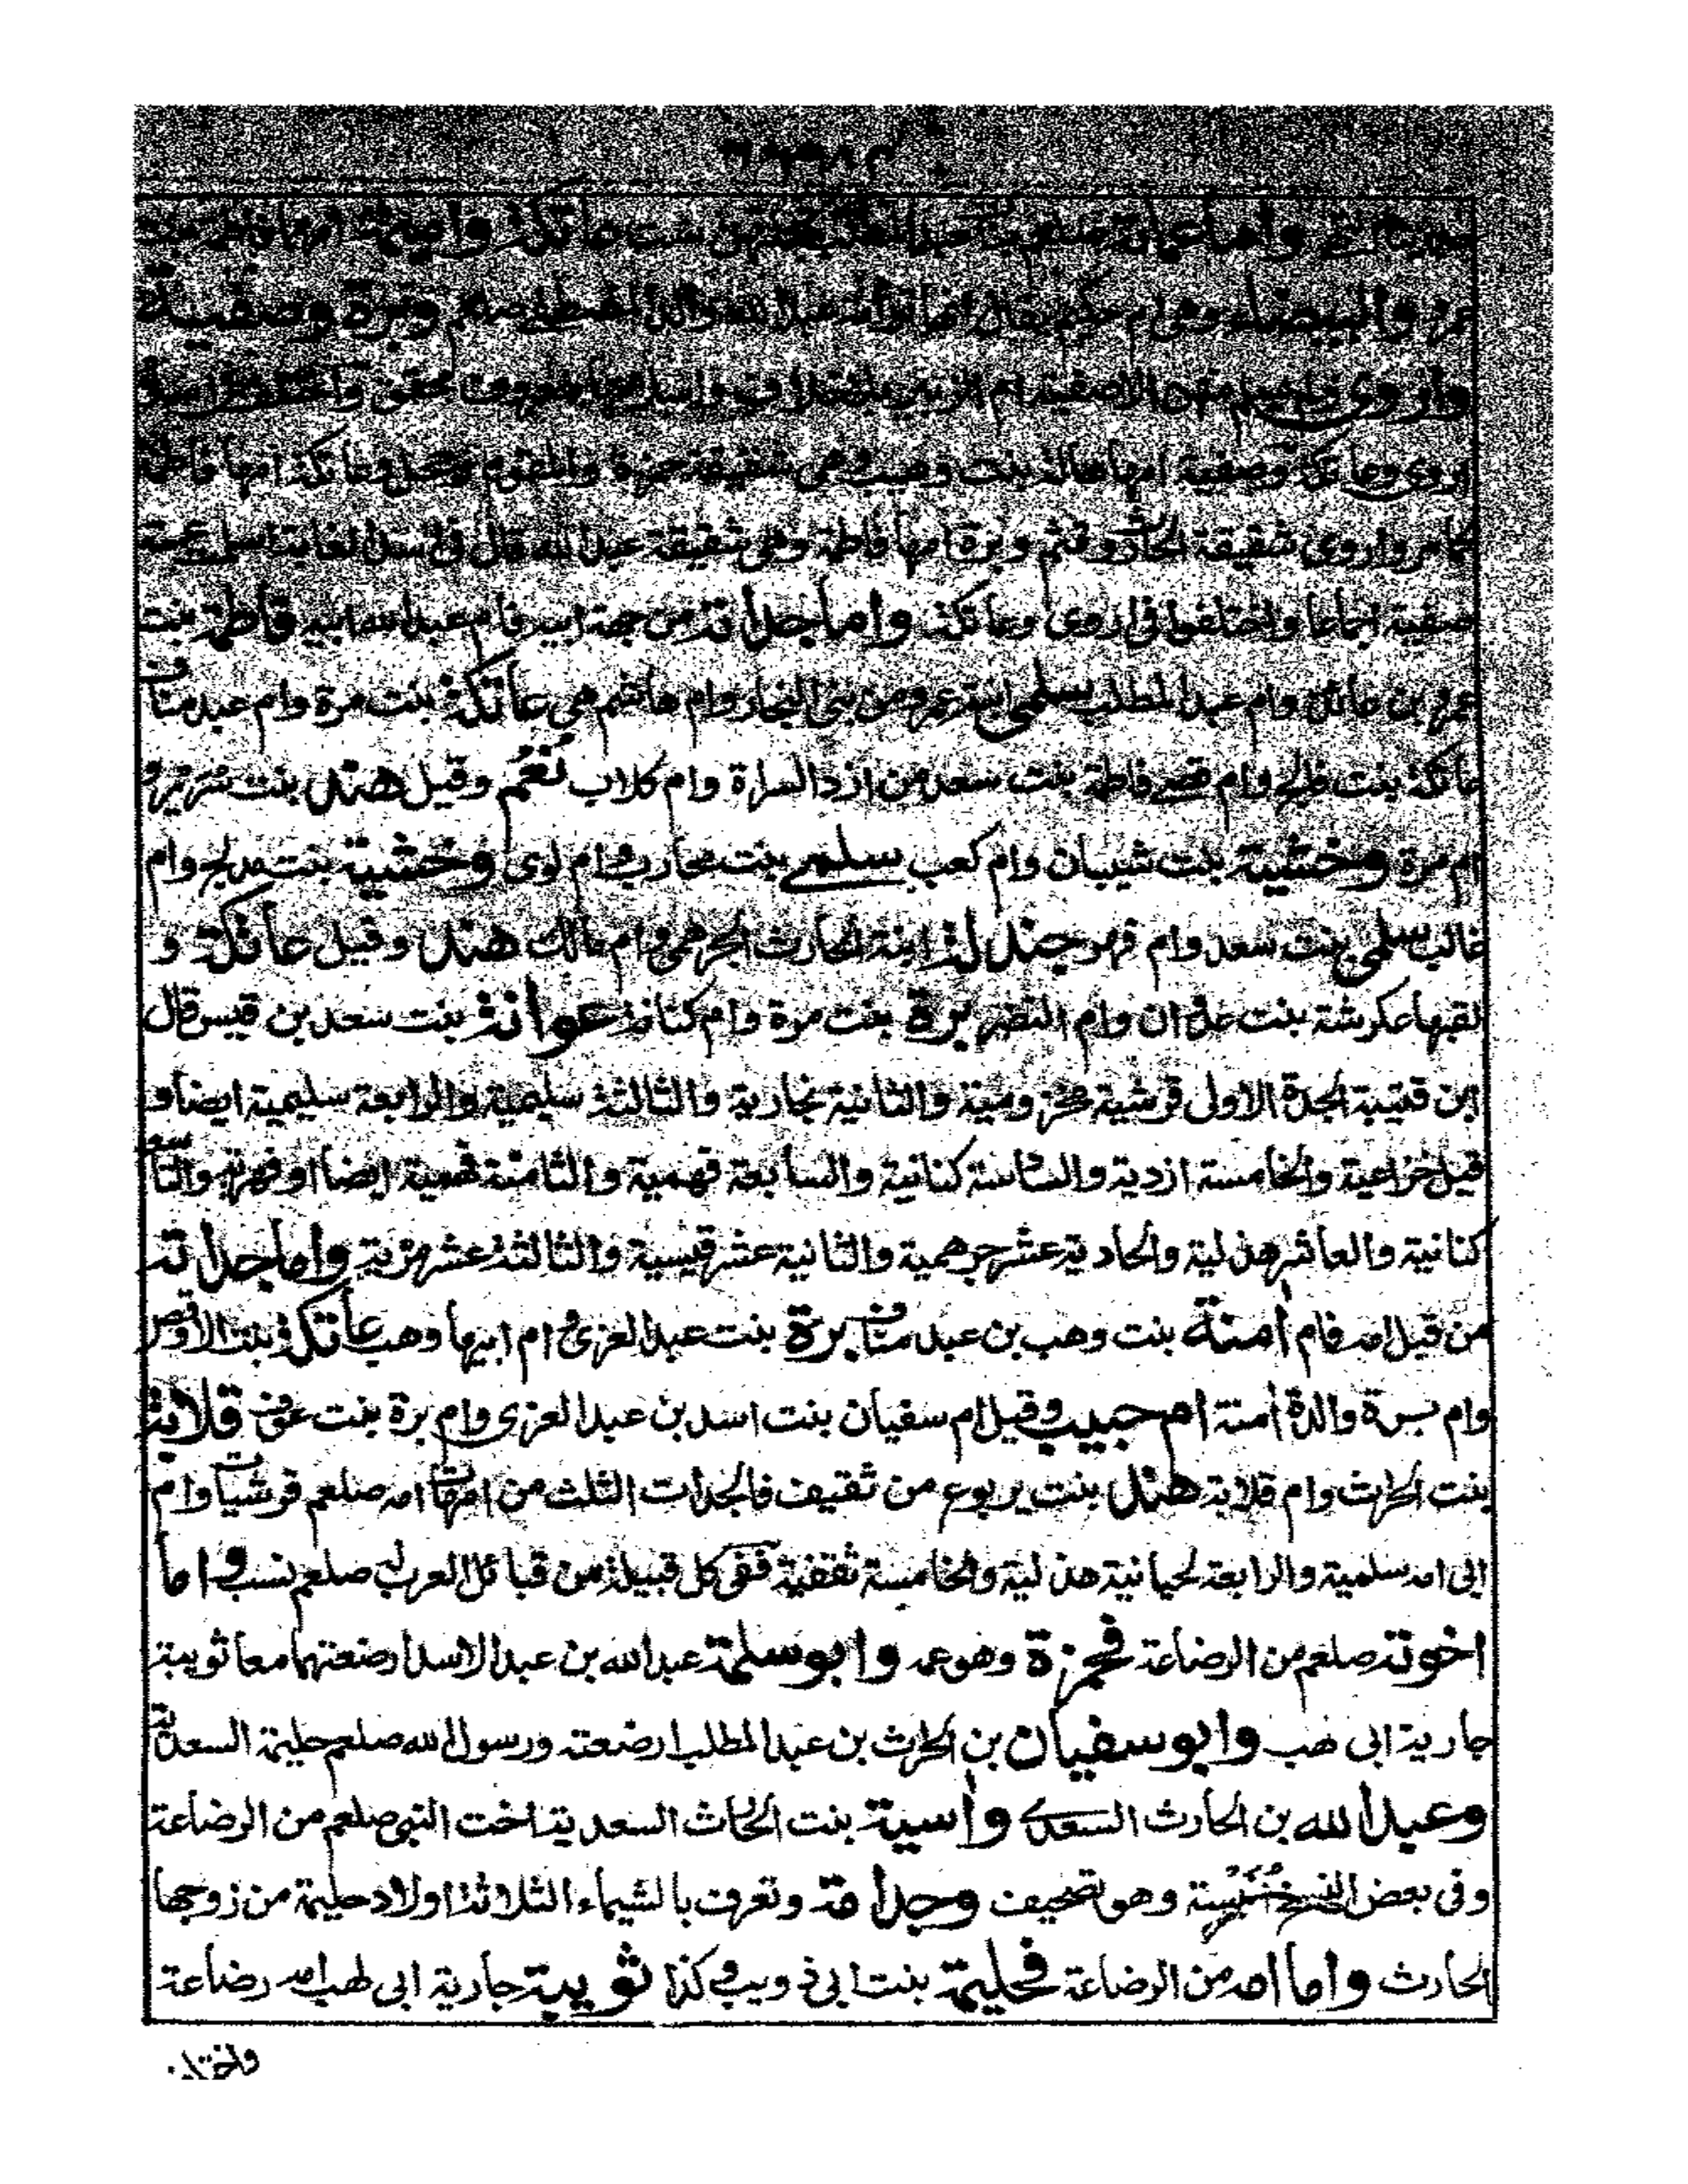 واما عماته صلعم بنات عبد المطلب فجملتهن ست عاتكة واميمة امهما فاطمة بنت
عمرو والبيضاء وهي ام حكيم يقال انها توأمة عبد الله والد المصطفى صلعم وبرة وصفية
واروى ولم يسلم منهن الا صفية ام الزبير بلا خلاف واسلامها معروف محقق واختلف في اسلام
اروى وعاتكة وصفية امها هالة بنت وهيب وهي شقيقة حمزة والمقوم وحجل وعاتكة امها فاطمة
كما مر واروى شقيقة الحارث وقثم وبرة امها فاطمة وهي شقيقة عبد الله قال في اسد الغابة اسلمت عمته
صفية اجماعا واختلفوا في اروى وعاتكة واما جداته من جهة ابيه فام عبد الله ابيه فاطمة بنت
عمرو بن عائذ وام عبد المطلب سلمى ابنة عمرو من بني النجار وام هاشم هي عاتكة بنت مرة وام عبد مناف
عاتكة بنت فالج وام قصي فاطمة بنت سعد من ازد السراة وام كلاب نعم وقيل هند بنت سرير و
ام مرة وخشية بنت شيبان وام كعب سلمى بنت محارب وام لوى وخشية بنت مدلج وام
غالب سلمى بنت سعد وام فهر جندلة ابنة الحارث الجرهمي وام مالك هند وقيل عاتكة و
لقبها عكرشة بنت عدوان وام النضر برة بنت مرة وام كنانة عوانة بنت سعد بن قيس قال
ابن قتيبة الجدة الاولى قرشية مخزومية والثانية نجارية والثالثة سليمية والرابعة سليمية ايضا و
قيل خزاعية والخامسة ازدية والسادسة كنانية والسابعة فهمية والثامنة فهمية ايضا او فهرية والتاسعة
كنانية والعاشر هذلية والحادية عشر جرهمية والثانية عشر قيسية والثالثة عشر مزية واما جداته
من قبل امه فام آمنة بنت وهب بن عبد مناف برة بنت عبد العزى ام ابيها وهب عاتكة بنت الاوقص
وام برة والدة آمنة ام حبيب وقيل ام سفيان بنت اسد بن عبد العزى وام برة بنت عوف قلابة
بنت الحرث وام قلابة هند بنت يربوع من ثقيف فالجدات الثلث من امهات امه صلعم قرشيات وام
ابى امه سلمية والرابعة لحيانية هذلية والخامسة ثقفية ففى كل قبيلة من قبائل العرب له صلعم نسب واما
اخوته صلعم من الرضاعة فحمزة وهو عمه وابو سلمة عبد الله بن عبد الاسد ارضعتهما معا ثويبة
جارية ابى لهب وابو سفيان بن الحرث بن عبد المطلب ارضعته ورسول الله صلعم حليمة السعدية
وعبد الله بن الحارث السعدى وآسية بنت الحارث السعدية اخت النبى صلعم من الرضاعة
وفى بعض النسخ وهو تصحيف وجدامة وتعرف بالشيماء الثلاثة اولاد حليمة من زوجها
الحارث واما امه من الرضاعة فحليمة بنت ابى ذويب وكذا ثويبة جارية ابى لهب امه رضاعة
واختلف